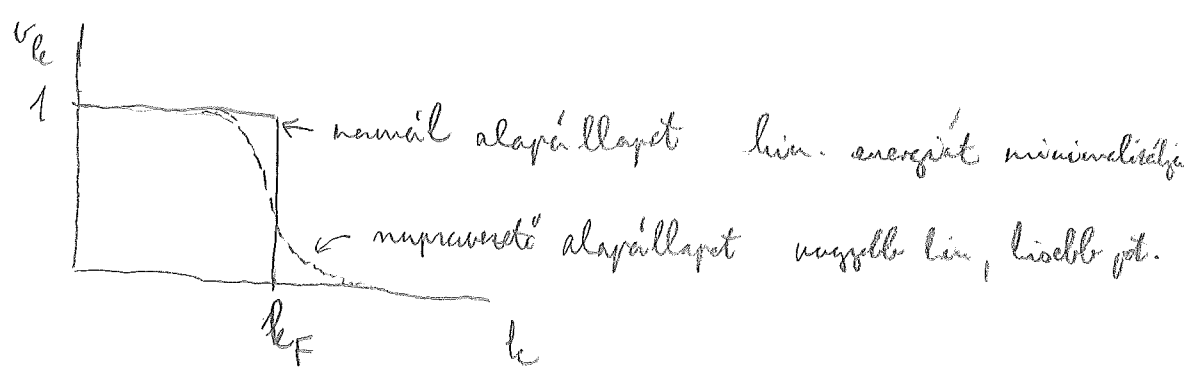 v_k
1
← normál alapállapot kin. energiát minimalizálja
← szupravezető alapállapot nagyobb kin, kisebb pot.
k_F
k